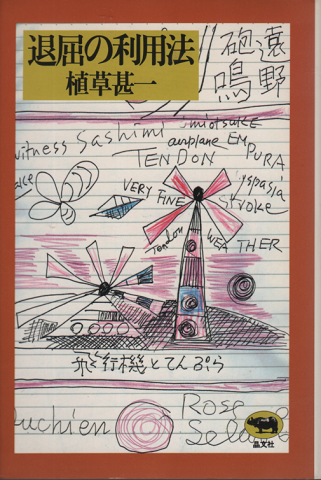 退屈の利用法
植草甚一
砲 遠
鳴 野
witness Sashimi
miotsuKE
airplane EM
TENDON PURA
VERY FINE
Stroke
Tendon WEATHER
飛行機とてんぷら
uchien
Rose
晶文社